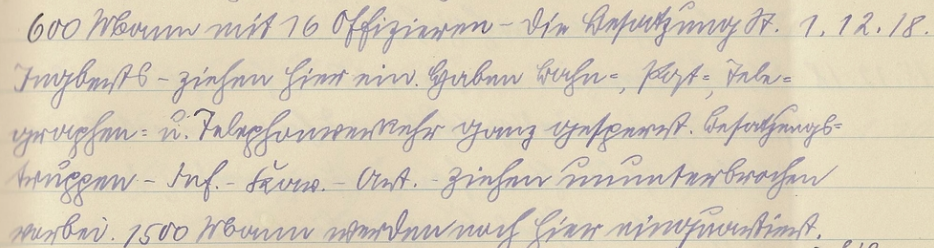 600 Mann mit 16 Offizieren - die Besatzung St. 1.12.18.
Ingberts - ziehen hier ein. Haben Bahn=, Post=, Tele=
graphen= u. Telephonverkehr ganz gesperrt. Besatzungs=
truppen - Inf. - Kav. - Art. - ziehen ununterbrochen
vorbei. 1500 Mann werden noch hier einquartiert.